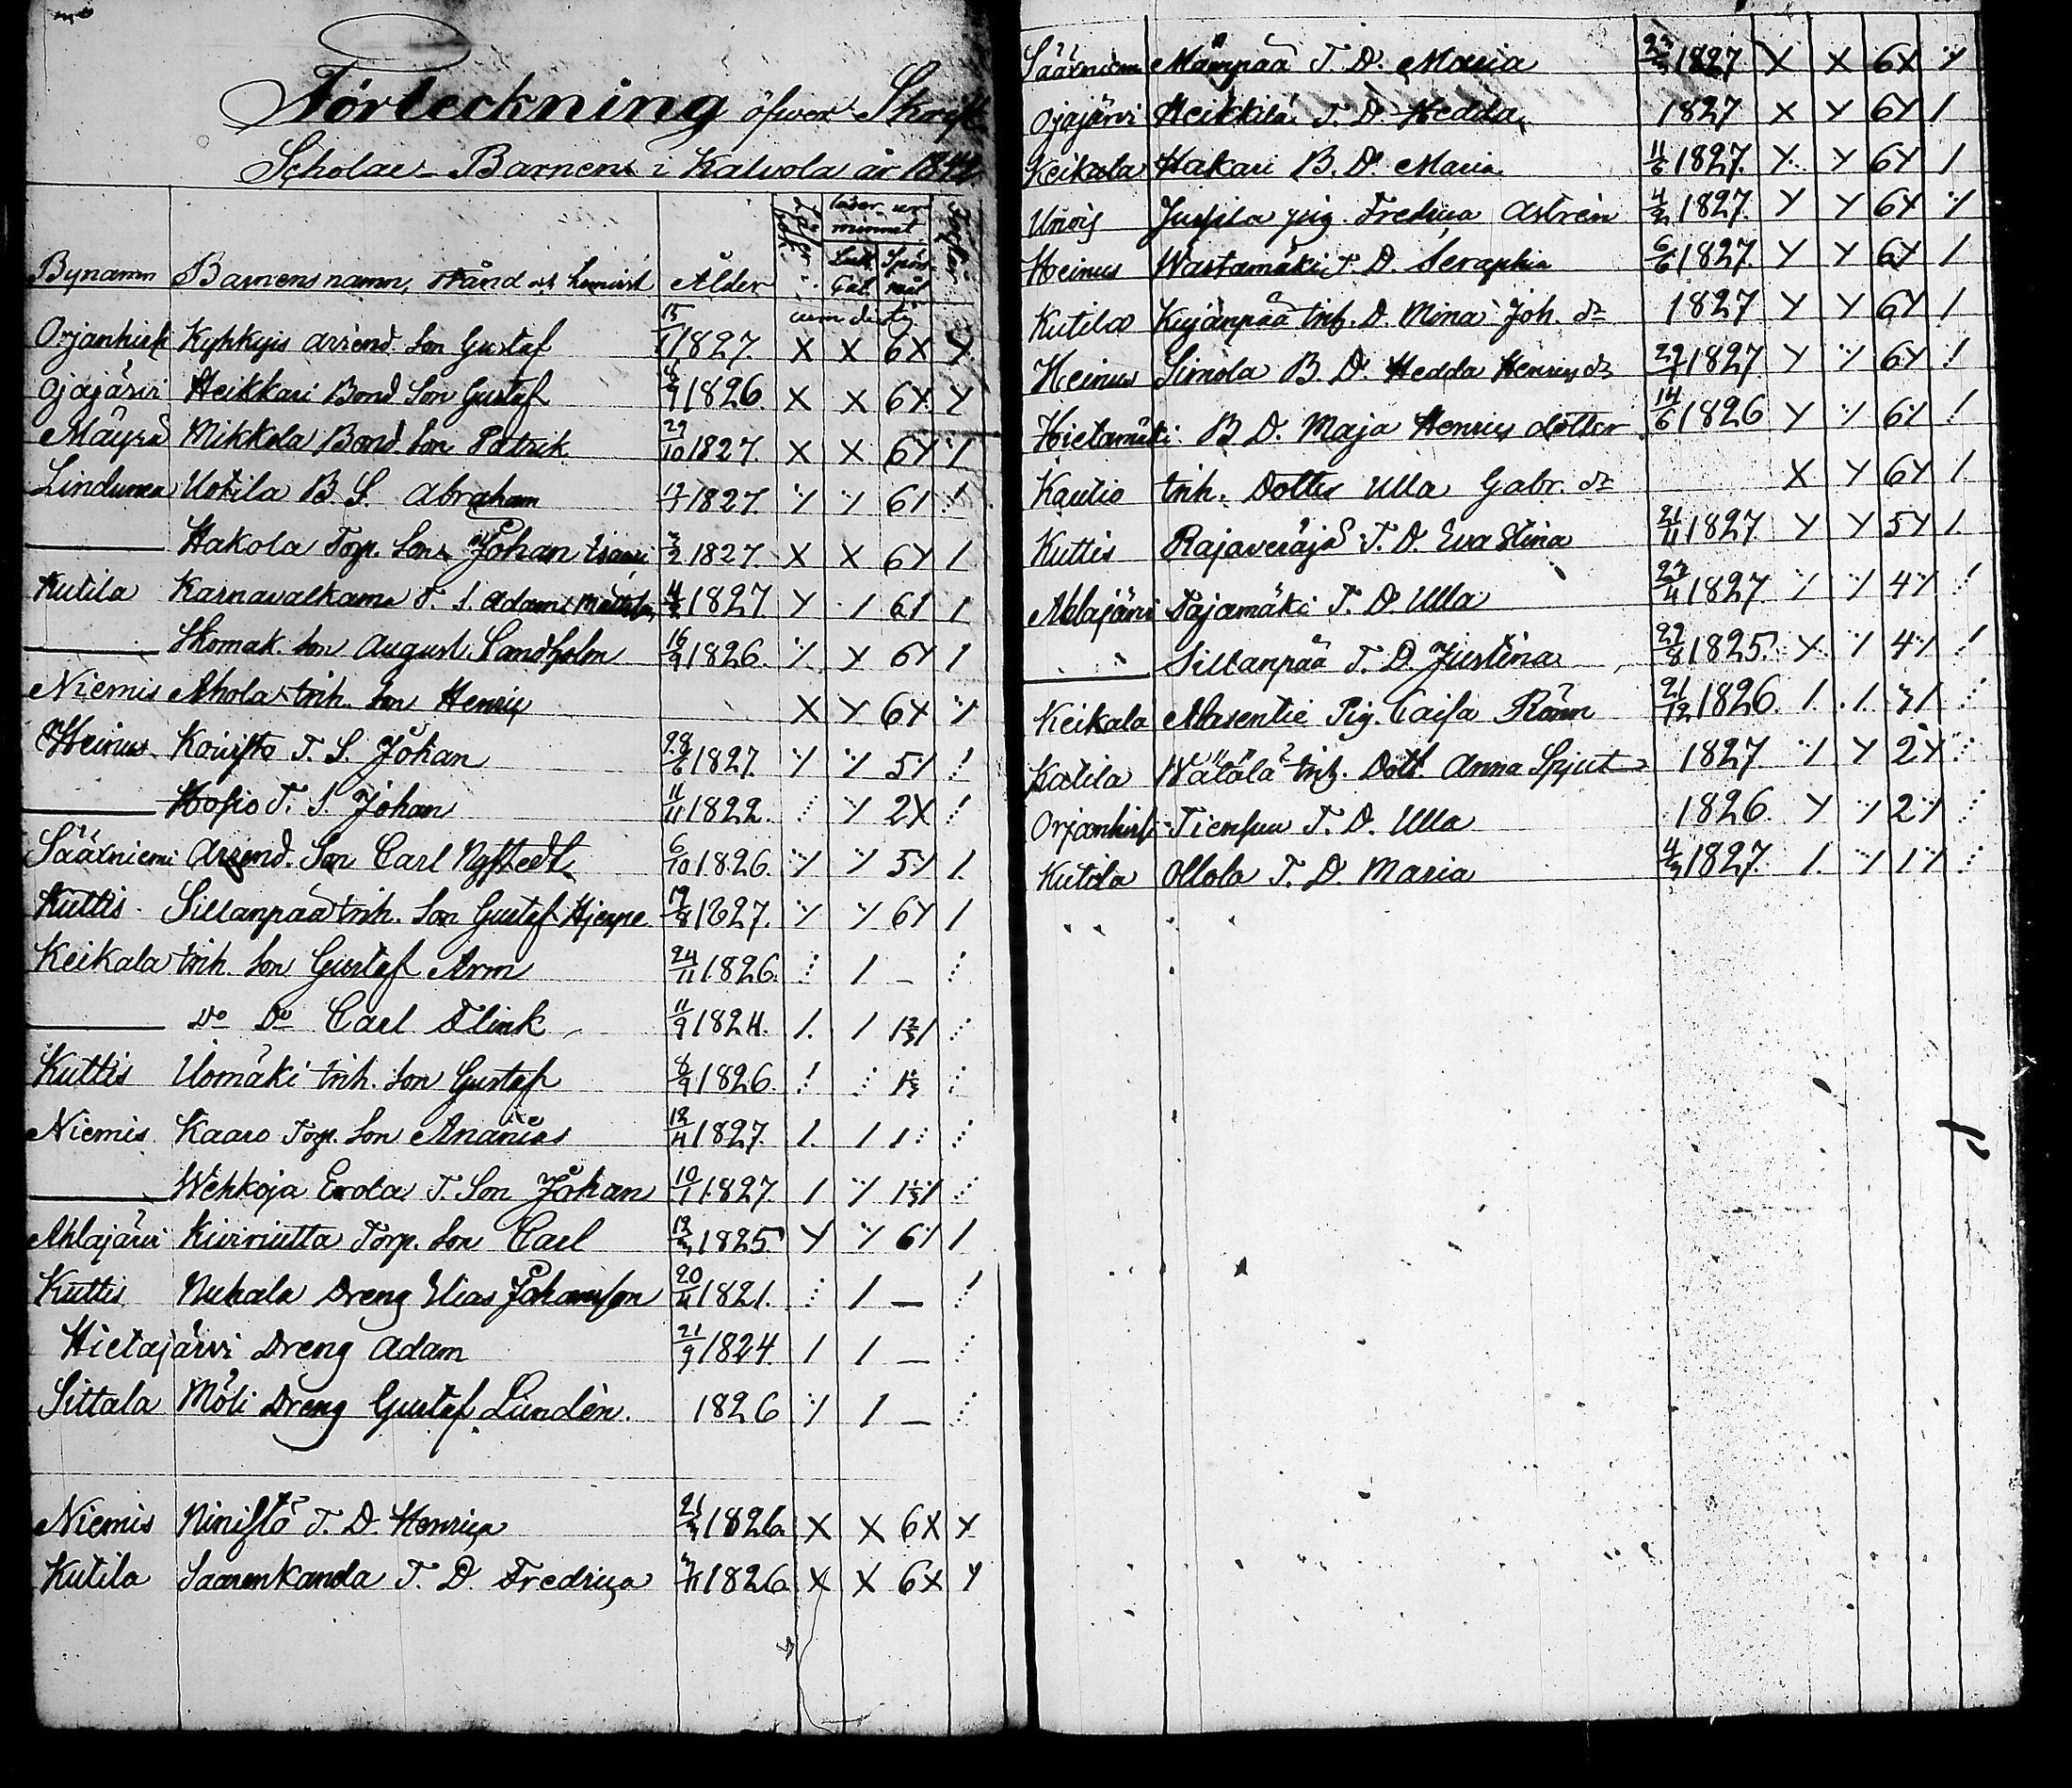 Förteckning öfver Skrift
Scholae-Barnen i Kalvola år 1842
Bynamn Barnens namn, stånd och hemvist Ålder Läser i bok läser ur minnet Luth. Cat. Spörs mål Förstår
cum disti
Orjanhirfi Kyhkyis arrend. Son Gustaf 15/11 1827. X X 6X Y
Ojajärvi Heikkari Bond Son Gustaf 8/9 1826. X X 6Y Y
Mäyrä Mikkola Bond. Son Patrik 29/10 1827. X X 6Y ·/·
Lindumea Uotila B. S. Abraham 1827.
Hakola Torp. Son Johan 3/2 1827. X X 6Y /
Kutila Karnavalkama T. S. Adam 1827 Y / 6/ /
Skomak. Son August Sandholm 16/9 1826. Y 6Y /
Niemis Ahola inh. Son Henric X Y 6X
Heinus Koivisto T. S. Johan 28/6 1827. 5
Hosio T. S. Johan 11/11 1822. 2X
Säärniemi Arrend. Son Carl Nystedt 6/10 1826. 5
Kuttis Sillanpää inh. Son Gustaf Hjerpe 19/8 1827. 6Y /
Keikala inh. Son Gustaf Arm 24/11 1826. / –
Do Do Carl Flink 11/9 1824. / /
Kuttis Uomäki inh. Son Gustaf 8/9 1826.
Niemis Kaaro Torp. Son Ananias 1827. / /
Wehkoja Erola T. Son Johan 10/1 1827. /
Ahlajärvi Kiviriutta Torp. Son Carl 1825. Y 6 /
Kuttis Nuhala Dreng Elias Johansson 1821. / –
Hietajärvi Dreng Adam 21/9 1824. / / –
Sittala Möli Dreng Gustaf Lundèn. 1826 / –
Niemis Ninistö T. D. Henrica 1826 X X 6X Y
Kutila Saarenkanda T. D. Fredrica 1826 X X 6X Y
Säärniemi Mänpää T. D. Maria 1827 X X 6X
Ojajärvi Heikkilä T. D. Hedda 1827 X Y 6Y /
Keikala Hakari B. D. Maria 11/6 1827. Y Y 6Y /
Unois Jussila pig. Fredrica Astrèn 1827. Y Y 6Y
Heinus Wastamäki T. D. Seraphia 6/6 1827. Y Y 6Y /
Kutila Kujänpää inh. D. Mina Joh. dr 1827 Y Y 6Y /
Heinus Simola B. D. Hedda Henrics dr 1827 Y 6Y
Hietamäki B. D. Maja Henrics dotter 14/6 1826 Y 6
Kautio inh. Dotter Ulla Gabr. dr X Y 6Y /
Kuttis Rajaveräjä T. D. Eva Stina 21/11 1827. Y Y 5Y /
Ahlajärvi Tajamäki T. D. Ulla 1827. 4
Sillanpää T. D. Justina 1825. 4
Keikala Alasentie Pig. Caisa Rönn 21/12 1826. / / 3/
Katila Wälälä inh. Dott. Anna Spjut 1827 Y 2Y
Orjanhirfi Tiensuu T. D. Ulla 1826. Y 2
Kutila Ollola T. D. Maria 1827. / 1